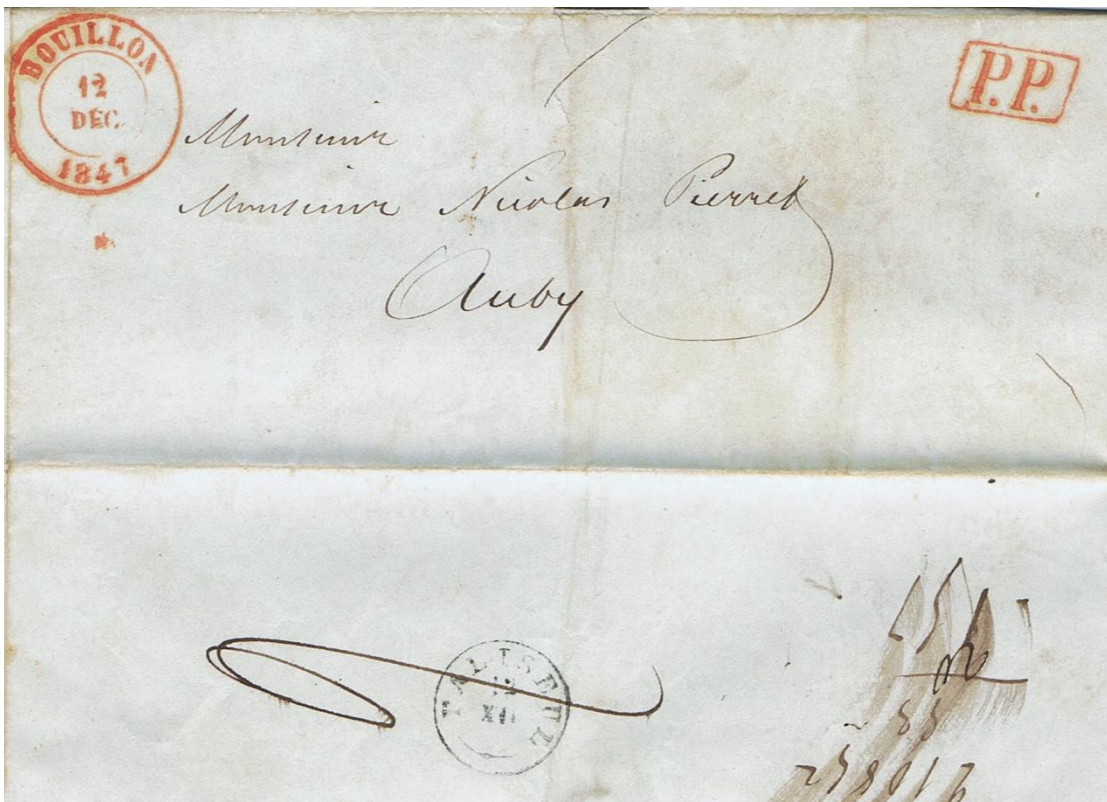 BOUILLON
12
DEC.
1847
P.P.
Monsieur
Monsieur Nicolas Pierret
Auby
PALISEUL
12
XII